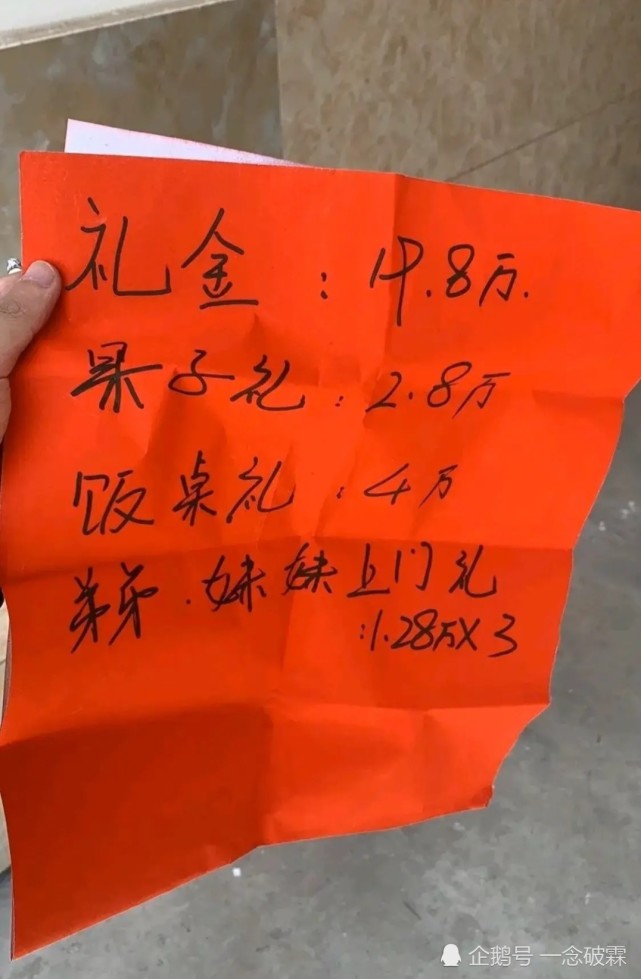 礼金:19.8万.
果子礼:2.8万
饭桌礼:4万
弟弟.妹妹上门礼
:1.28万×3
企鹅号 一念破霖